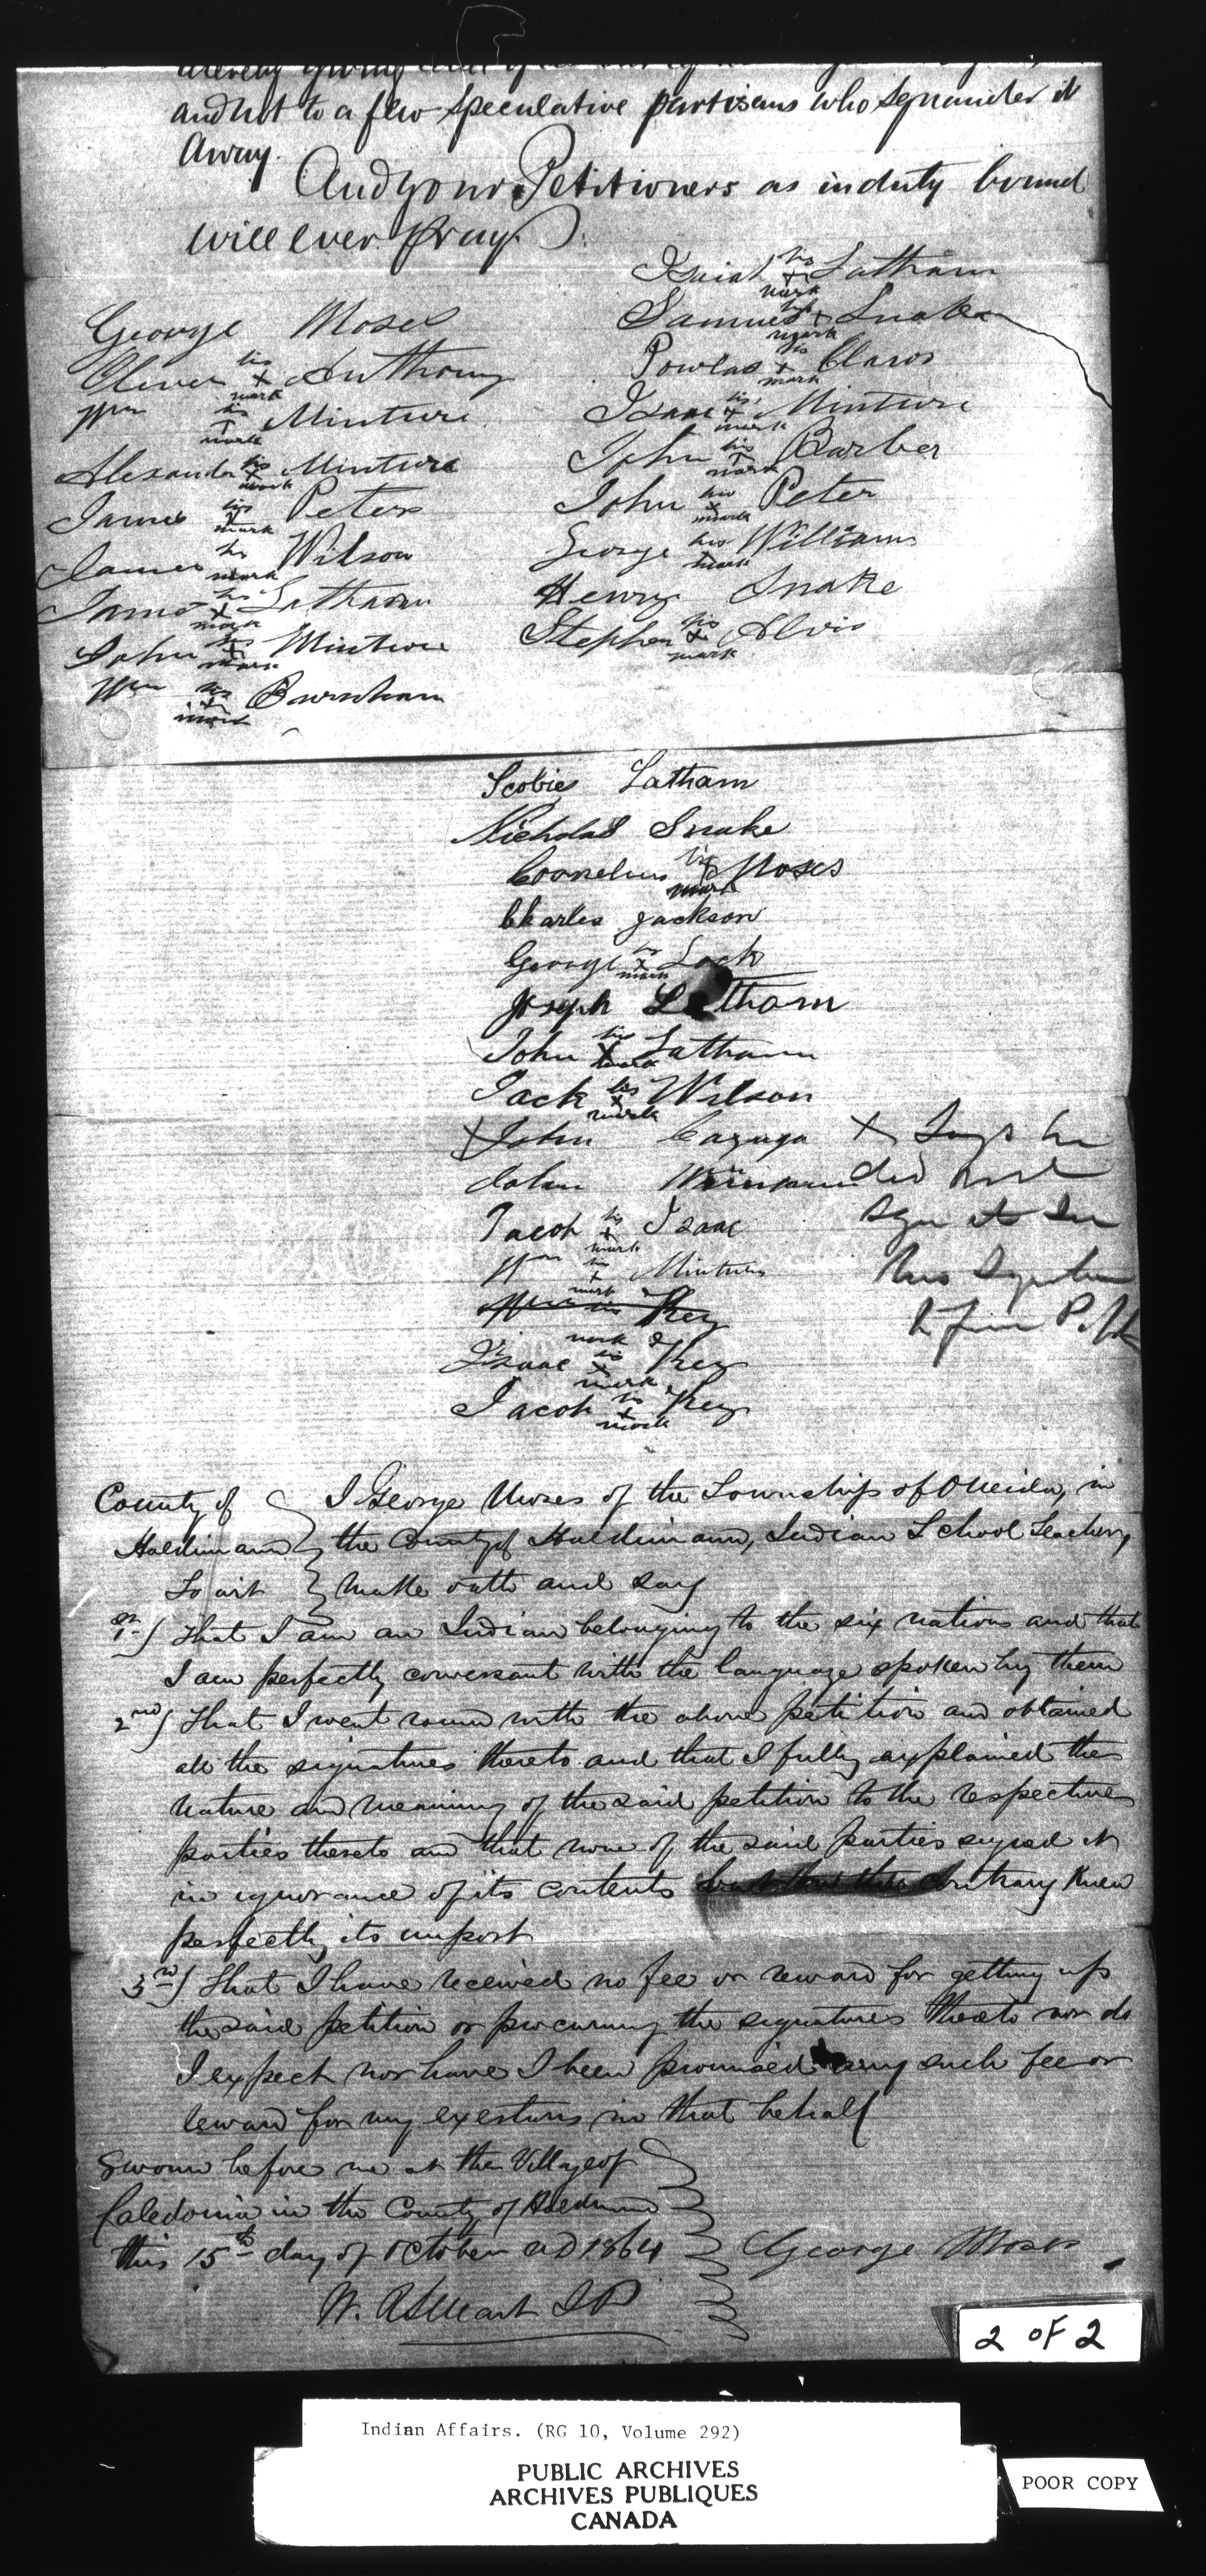 and not to a few speculative partisans who squander it
away.
And your Petitioners as in duty bound
will ever pray.
George Moses
Oliver his x mark Anthony
Wm his x mark Minture
Alexander his x mark Minture
James his x mark Peters
James his mark Wilson
James his x mark Latham
John his x mark Minture
Wm his x mark Burnham
Isaiah his x mark Latham
Samuel his x mark Snake
Powlas his x mark Claws
Isaac his x mark Minture
John his x mark Barber
John his x mark Peter
George his x mark Williams
Henry Snake
Stephen his x mark Alvis
Scobie Latham
Nicholas Snake
Cornelius his x mark Moses
Charles Jackson
George his x mark Lock
Joseph Latham
John his x mark Latham
Jack his x mark Wilson
x John Cayuga
John
Jacob his x mark Isaac
Wm his x mark Minture
his Key
mark
Isaac his x mark Key
Jacob his x mark Key
x Says he
did not
sign it
County of
Haldimand
To wit
I George Moses of the Township of Oneida, in
the County of Haldimand, Indian School Teacher,
make oath and say
1st) That I am an Indian belonging to the six nations and that
I am perfectly conversant with the language spoken by them
2nd) That I went round with the above petition and obtained
all the signatures thereto and that I fully explained the
nature and meaning of the said petition to the respective
parties thereto and that none of the said parties signed it
in ignorance of its contents but on the contrary knew
perfectly its import
3rd) That I have received no fee or reward for getting up
the said petition or procuring the signatures thereto nor do
I expect nor have I been promised any such fee or
reward for my exertions in that behalf
Sworn before me at the Village of
Caledonia in the County of Haldimand
this 15th day of October AD 1864
George Moses
W. R Stuart JP
2 OF 2
Indian Affairs. (RG 10, Volume 292)
PUBLIC ARCHIVES
ARCHIVES PUBLIQUES
CANADA
POOR COPY